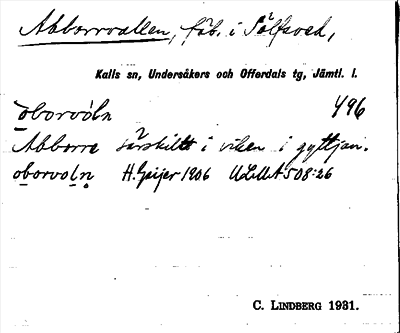 Abborrvallen, fäb. i Sölfsved,
Kalls sn, Undersåkers och Offerdals tg, Jämtl. l.
oborvòln 496
Abborre särskilt i viken i gyttjan.
oborvoln H. Geijer 1906 ULMA 508:26
C. LINDBERG 1931.